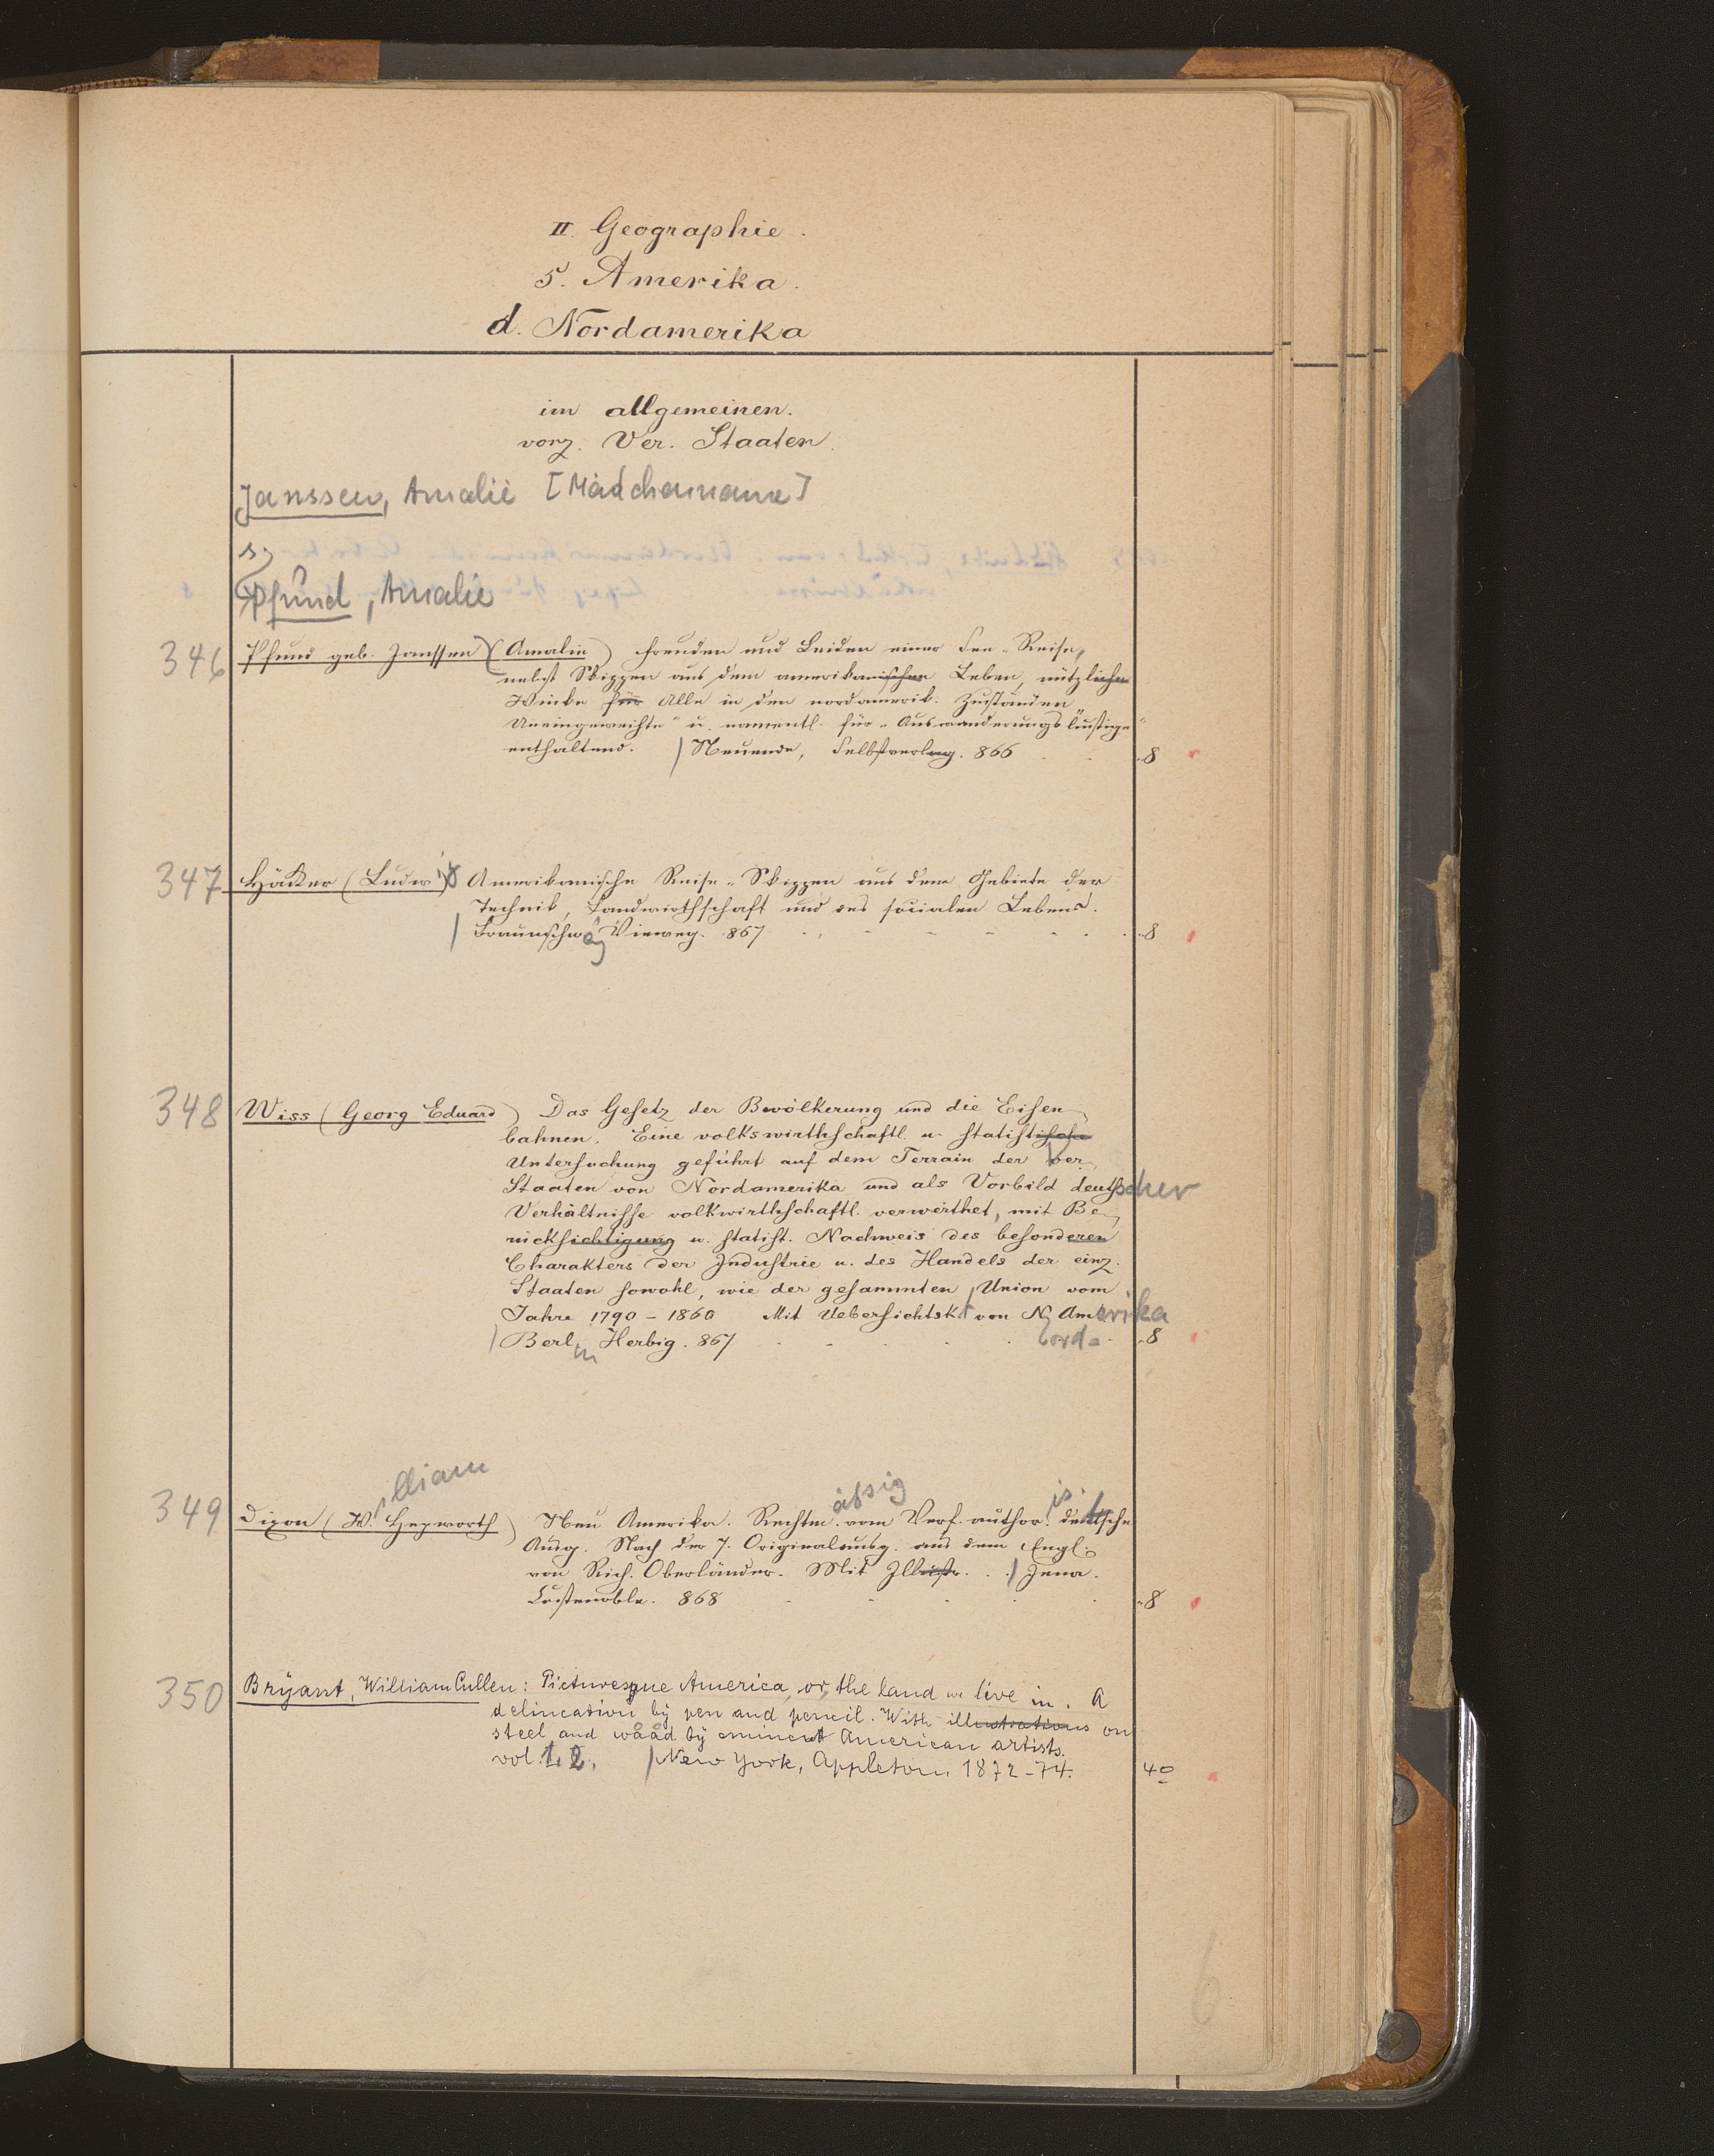 II. Geographie.
5. Amerika.
d. Nordamerika
im allgemeinen.
vorz. Ver. Staaten.
Janssen, Amalie [Mädchenname]
s.
Pfund, Amalie
346 Pfund geb. Janssen (Amalie) Freuden und Leiden einer See-Reise,
nebst Skizzen aus dem amerikanischen Leben, nützliche
Winke für Alle in den nordamerik. Zuständen
Uneingeweihte" u. namentl. für "Auswanderungslustige"
enthaltend. | Neuende, Selbstverlag. 866 8
347 Häcker (Ludwig) Amerikanische Reise-Skizzen aus dem Gebiete der
Technik, Landwirthschaft und des socialen Lebens.
| Braunschweig Vieweg. 867 8
348 Wiss (Georg Eduard) Das Gesetz der Bevölkerung und die Eisen-
bahnen. Eine volkswirthschaftl. u. statistische
Untersuchung geführt auf dem Terrain der Ver.
Staaten von Nordamerika und als Vorbild deutscher
Verhältnisse volkwirthschaftl. verwerthet, mit Be-
rücksichtigung u. statist. Nachweis des besonderen
Charakters der Industrie u. des Handels der einz.
Staaten sowohl, wie der gesammten Union vom
Jahre 1790 - 1860 Mit Uebersichtsk. von N. Amerika
ord-
| Berlin Herbig. 867 8
349 Dixon (William Hepworth) Neu Amerika. Rechtmässig vom Verf. authoris. deutsche
Ausg. Nach der 7. Originalausg. aus dem Engl.
von Rich. Oberländer. Mit Illustr. | Jena.
Costenoble. 868 8
350 Bryant, William Cullen: Picturesque America, or, the land we live in. A
delineation by pen and pencil. With illustrations on
steel and wood by eminent American artists.
vol. 1. 2. | New York, Appleton. 1872-74. 4º
6